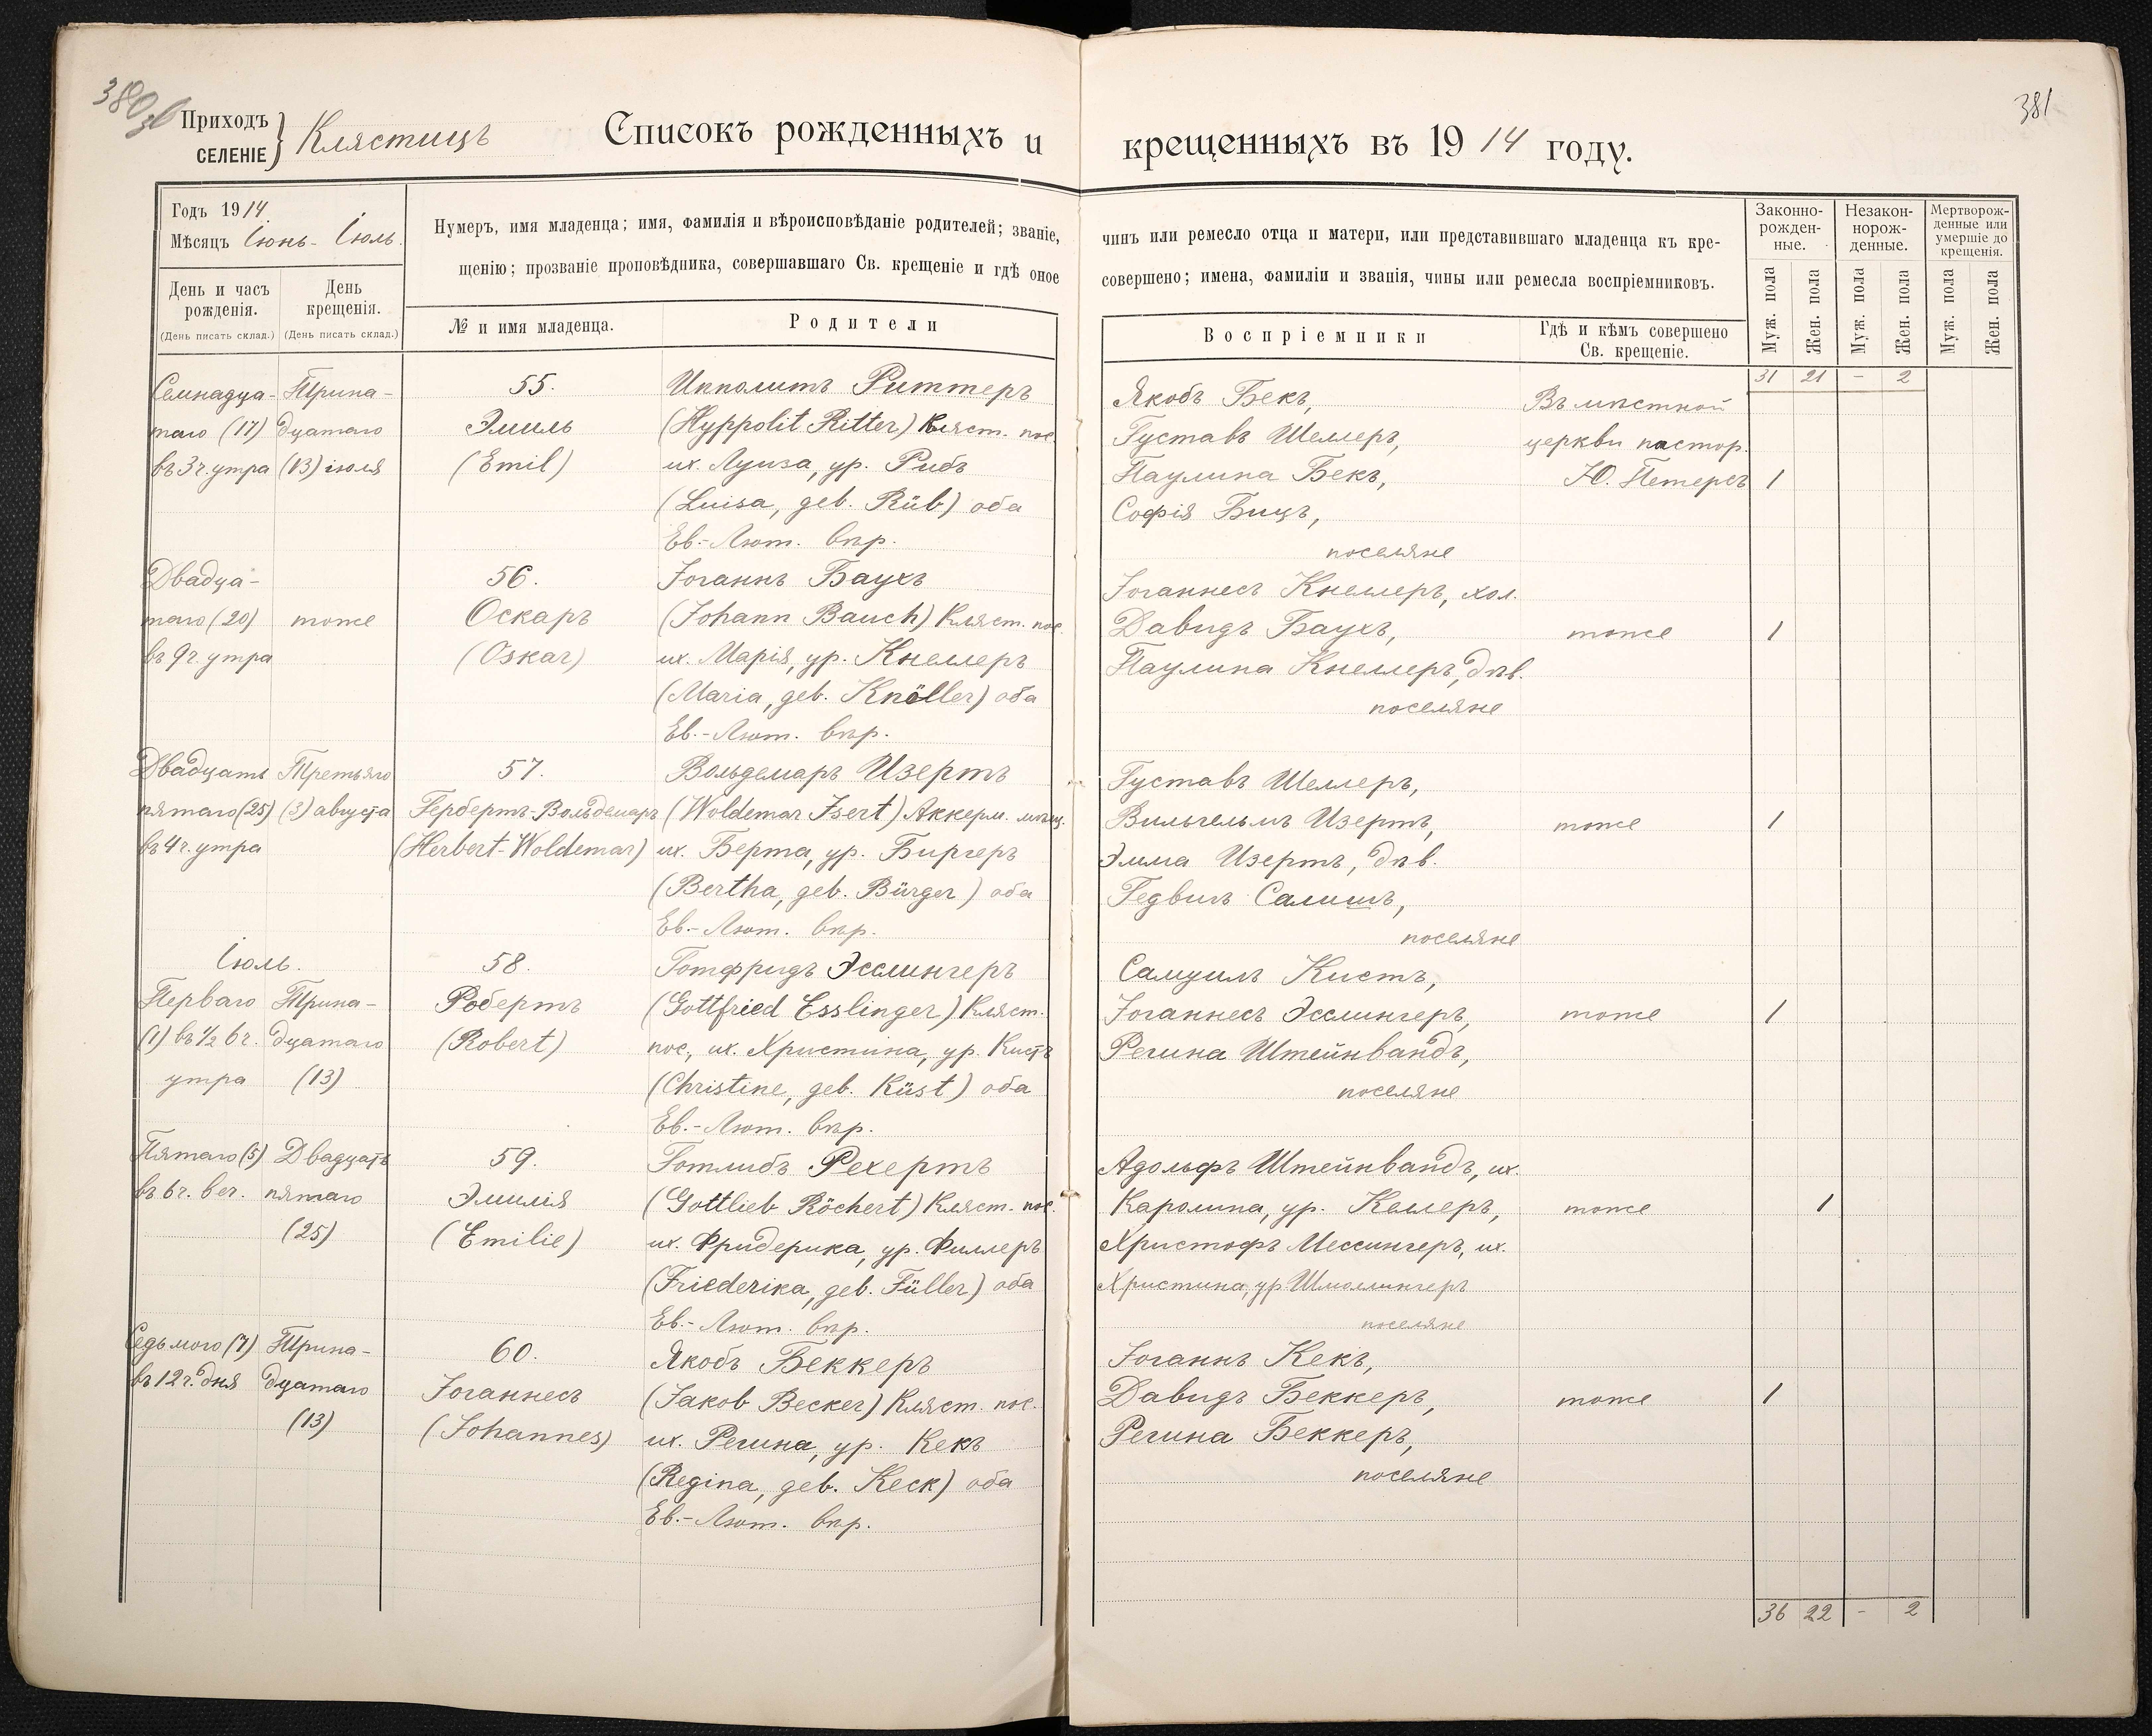 380 зв
381
Приходъ
СЕЛЕНІЕ
Клястицъ
Списокъ рожденныхъ и крещенныхъ въ 1914 году.
Годъ 1914.
Мѣсяцъ Іюнь - Іюль.
Нумеръ, имя младенца; имя, фамилія и вѣроисповѣданіе родителей; званіе, чинъ или ремесло отца и матери, или представившаго младенца къ кре-
щенію; прозваніе проповѣдника, совершавшаго Св. крещеніе и гдѣ оное совершено; имена, фамиліи и званія, чины или ремесла воспріемниковъ.
Законно-
рожден-
ные.
Незакон-
норож-
денные.
Мертворож-
денные или
умершіе до
крещенія.
День и часъ
рожденія.
(День писать склад.)
День
крещенія.
(День писать склад.)
№ и имя младенца.
Родители
Воспріемники
Гдѣ и кѣмъ совершено
Св. крещеніе.
Муж. пола
Жен. пола
Муж. пола
Жен. пола
Муж. пола
Жен. пола
31 21 - 2
Семнадца-
таго (17)
въ 3 ч. утра
Трина-
дцатаго
(13) іюля
55.
Эмиль
(Emil)
Ипполитъ Риттеръ
(Hyppolit Ritter) Кляст. пос.
их. Луиза, ур. Рибъ
(Luisa, geb. Rüb) оба
Ев.-Лют. вѣр.
Якобъ Бекъ,
Густавъ Шеллеръ,
Паулина Бекъ,
Софія Бицъ,
поселяне
Въ мѣстной
церкви пастор.
Ю. Петерсъ
1
Двадца-
таго (20)
въ 9 ч. утра
тоже
56.
Оскаръ
(Oskar)
Іоганнъ Баухъ
(Johann Bauch) Кляст. пос.
их. Марія, ур. Кнеллеръ
(Maria, geb. Knöller) оба
Ев.-Лют. вѣр.
Іоганнесъ Кнеллеръ, хол.
Давидъ Баухъ,
Паулина Кнеллеръ, дѣв.
поселяне
тоже
1
Двадцать
пятаго (25)
въ 4 ч. утра
Третьяго
(3) августа
57.
Гербертъ-Вольдемаръ
(Herbert-Woldemar)
Вольдемаръ Изертъ
(Woldemar Isert) Аккерм. мѣщ.
их. Берта, ур. Биргеръ
(Bertha, geb. Bürger) оба
Ев.-Лют. вѣр.
Густавъ Шеллеръ,
Вильгельмъ Изертъ,
Эмма Изертъ, дѣв.
Гедвигъ Салишъ,
поселяне
тоже
1
Іюль.
Перваго
(1) въ ½ 6 ч.
утра
Трина-
дцатаго
(13)
58.
Робертъ
(Robert)
Готфридъ Эсслингеръ
(Gottfried Esslinger) Кляст.
пос., их. Христина, ур. Кистъ
(Christine, geb. Küst) оба
Ев.-Лют. вѣр.
Самуилъ Кистъ,
Іоганнесъ Эсслингеръ,
Регина Штейнвандъ,
поселяне
тоже
1
Пятаго (5)
въ 6 ч. веч.
Двадцать
пятаго
(25)
59.
Эмилія
(Emilie)
Готлибъ Рехертъ
(Gottlieb Röchert) Кляст. пос.
их. Фридерика, ур. Филлеръ
(Friederika, geb. Füller) оба
Ев.-Лют. вѣр.
Адольфъ Штейнвандъ, их.
Каролина, ур. Келлеръ,
Христофъ Мессингеръ, их.
Христина, ур.
поселяне
тоже
1
Седьмого (7)
въ 12 ч. дня
Трина-
дцатаго
(13)
60.
Іоганнесъ
(Johannes)
Якобъ Беккеръ
(Jakob Becker) Кляст. пос.
их. Регина, ур. Кекъ
(Regina, geb. Keck) оба
Ев.-Лют. вѣр.
Іоганнъ Кекъ,
Давидъ Беккеръ,
Регина Беккеръ,
поселяне
тоже
1
36 22 - 2